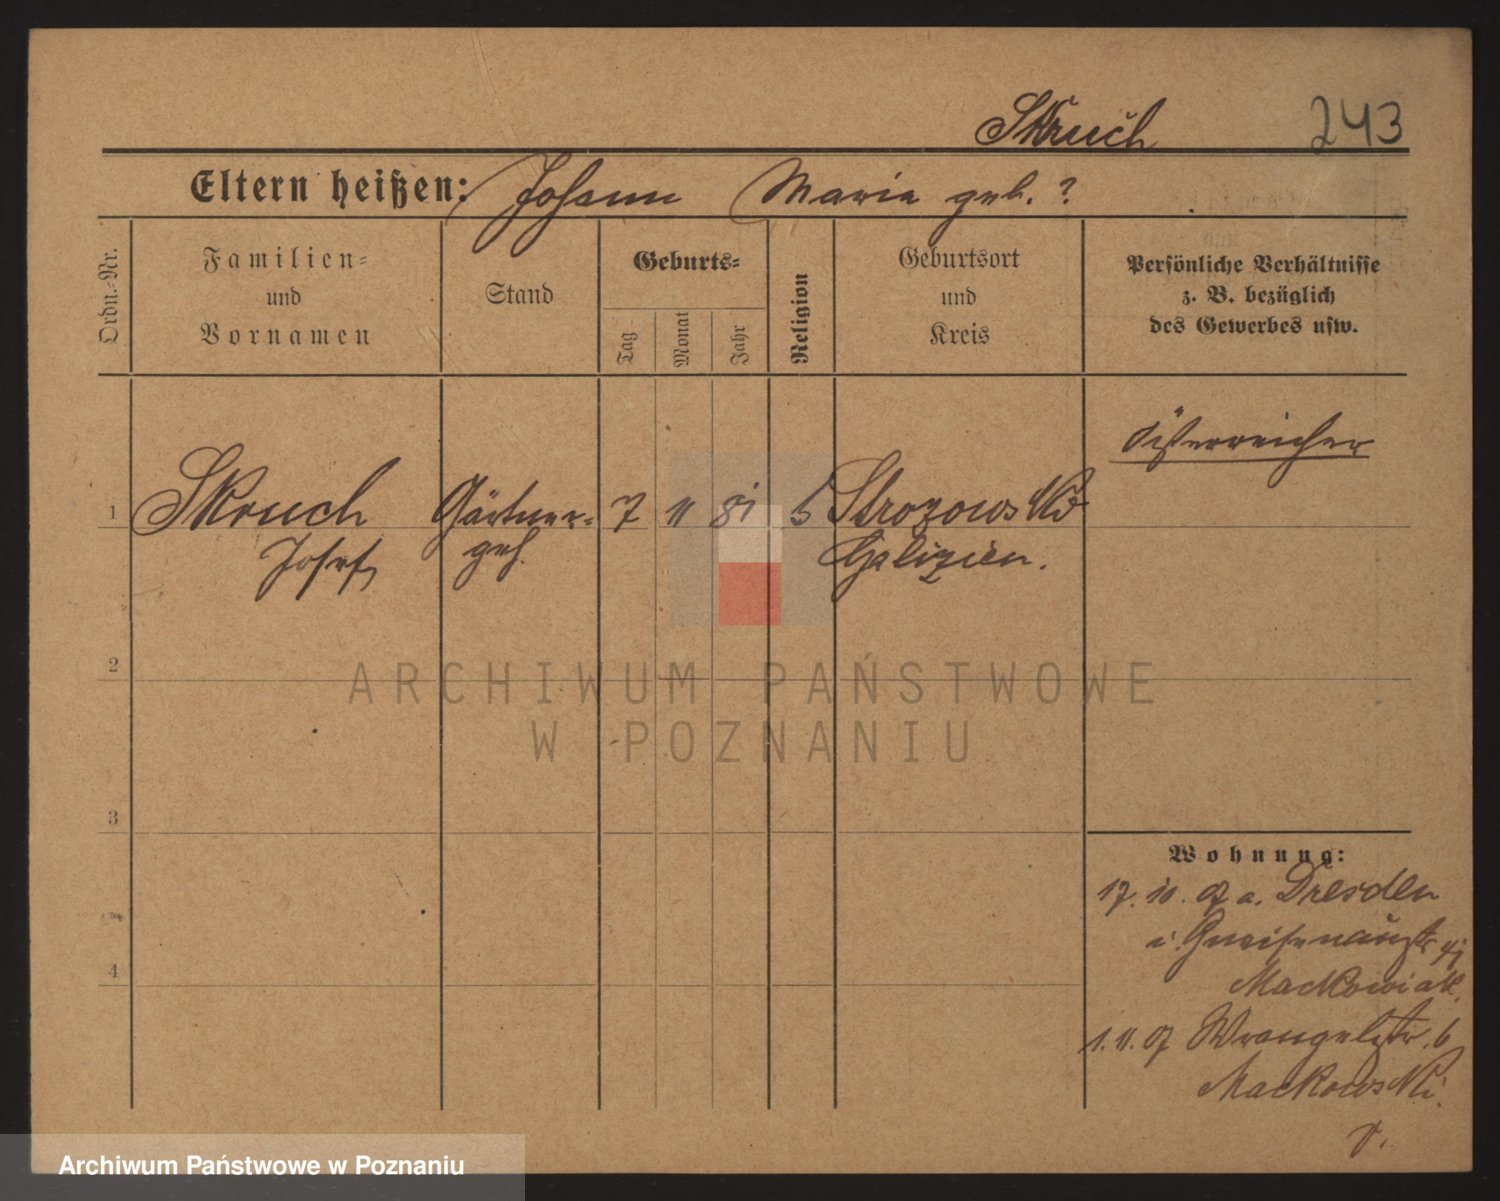 Skruch 243
Eltern heißen: Johann Maria geb. ?
Ordn.-Nr.
Familien-
und
Vornamen
Stand
Geburts-
Tag
Monat
Jahr
Religion
Geburtsort
und
Kreis
Persönliche Verhältnisse
z. B. bezüglich
des Gewerbes usw.
Österreicher
1 Skruch Gärtner- 7 11 81
Josef geh. Galizien.
2
3
4
Wohnung:
17. 10. 07 a. Dresden
Gneisenaustr
Mackowiak.
1. 11. 07 Wrangelstr. 6
Mackowski.
v.
ARCHIWUM PAŃSTWOWE
W POZNANIU
Archiwum Państwowe w Poznaniu